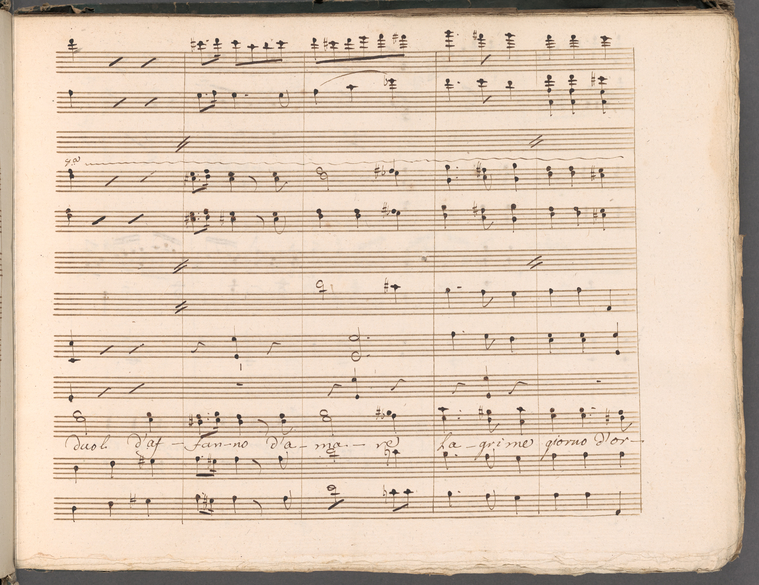 8va
duol d'af-fan-no d'a-ma-re la-grime giorno d'or-